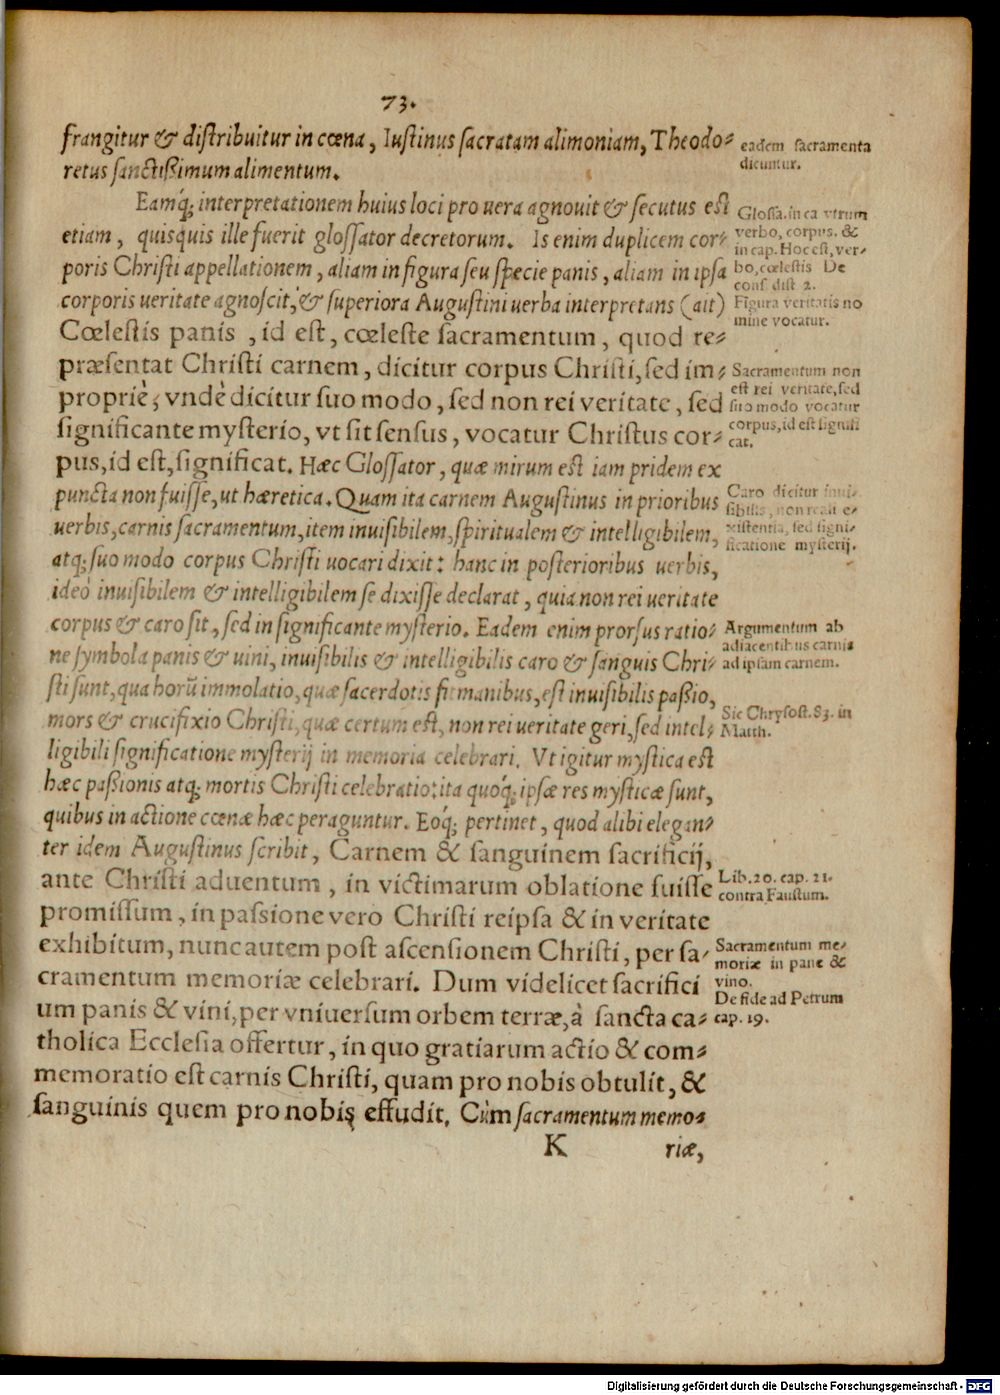 73.
frangitur & distribuitur in cœna, Iustinus sacratam alimoniam, Theodo-
retus sanctißimum alimentum.
Eamq́; interpretationem huius loci pro uera agnouit & secutus est
etiam, quisquis ille fuerit glossator decretorum. Is enim duplicem cor-
poris Christi appellationem, aliam in figura seu specie panis, aliam in ipsa
corporis ueritate agnoscit, & superiora Augustini uerba interpretans (ait)
Cœlestis panis, id est, cœleste sacramentum, quod re-
præsentat Christi carnem, dicitur corpus Christi, sed im-
propriè; vndè dicitur suo modo, sed non rei veritate, sed
significante mysterio, vt sit sensus, vocatur Christus cor-
pus, id est, significat. Hæc Glossator, quæ mirum est iam pridem ex
puncta non fuisse, ut hæretica. Quam ita carnem Augustinus in prioribus
uerbis, carnis sacramentum, item inuisibilem, spiritualem & intelligibilem,
atq; suo modo corpus Christi uocari dixit: hanc in posterioribus uerbis,
ideò inuisibilem & intelligibilem se dixisse declarat, quia non rei ueritate
corpus & caro sit, sed in significante mysterio. Eadem enim prorsus ratio-
ne symbola panis & uini, inuisibilis & intelligibilis caro & sanguis Chri-
sti sunt, qua horũ immolatio, quæ sacerdotis fit manibus, est inuisibilis paßio,
mors & crucifixio Christi, quæ certum est, non rei ueritate geri, sed intel-
ligibili significatione mysterij in memoria celebrari. Vt igitur mystica est
hæc paßionis atq; mortis Christi celebratio: ita quoq́; ipsæ res mysticæ sunt,
quibus in actione cœnæ hæc peraguntur. Eoq́; pertinet, quod alibi elegan-
ter idem Augustinus scribit, Carnem & sanguinem sacrificij,
ante Christi aduentum, in victimarum oblatione fuisse
promissum, in passione vero Christi reipsa & in veritate
exhibitum, nunc autem post ascensionem Christi, per sa-
cramentum memoriæ celebrari. Dum videlicet sacrifici
um panis & vini, per vniuersum orbem terræ, à sancta ca-
tholica Ecclesia offertur, in quo gratiarum actio & com-
memoratio est carnis Christi, quam pro nobis obtulit, &
sanguinis quem pro nobis effudit. Cùm sacramentum memo-
K
riæ,
eadem sacramenta
dicuntur.
Glossa. in ca vtrum
verbo, corpus. &
in cap. Hoc est, ver-
bo, cœlestis De
cons dist 2.
Figura veritatis no
mine vocatur.
Sacramentum non
est rei veritate, sed
suo modo vocatur
corpus, id est signifi
cat.
Caro dicitur inui-
sibilis, non reali e-
xistentia, sed signi-
ficatione mysterij.
Argumentum ab
adiacentibus carnis
ad ipsam carnem.
Sic Chrysost. 83. in
Matth.
Lib. 20. cap. 21.
contra Faustum.
Sacramentum me-
moriæ in pane &
vino.
De fide ad Petrum
cap. 19.
Digitalisierung gefördert durch die Deutsche Forschungsgemeinschaft - DFG